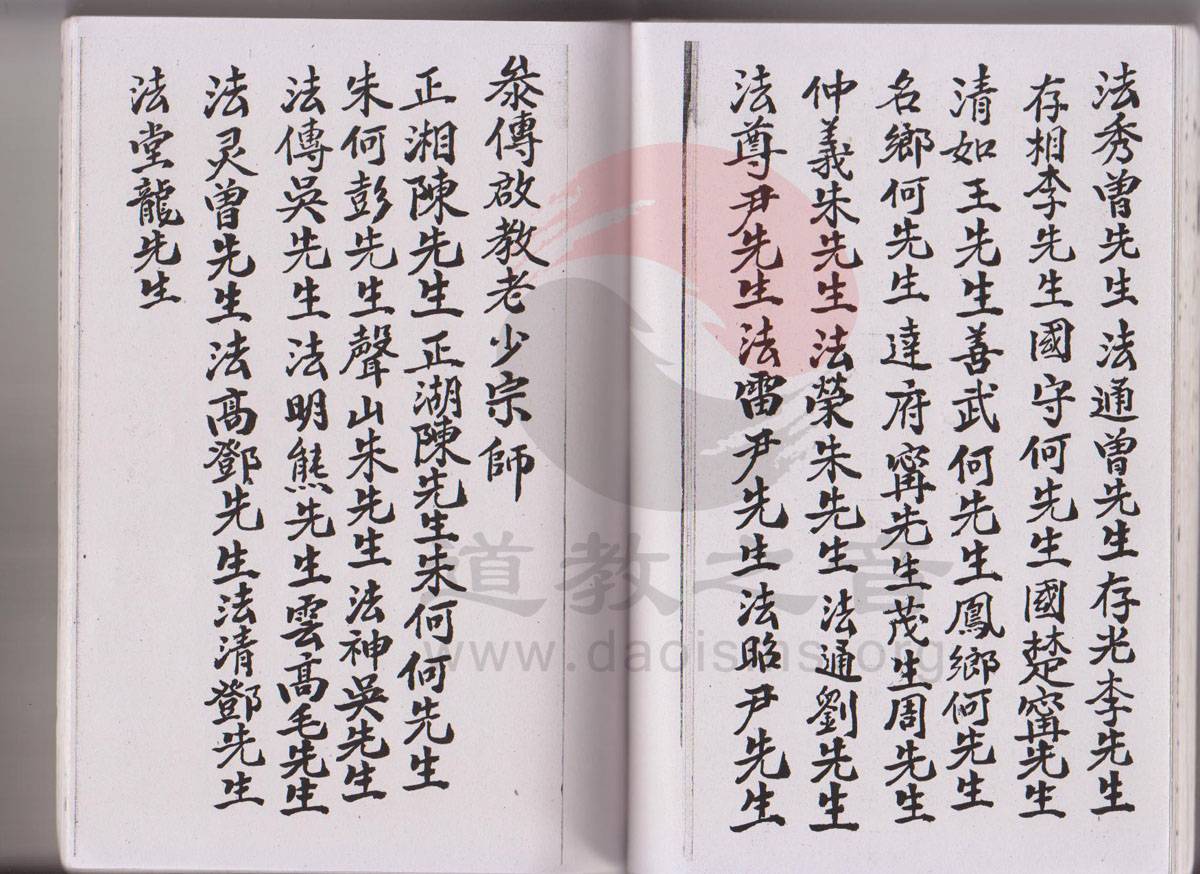 法秀曾先生法通曾先生存光李先生
存相李先生國守何先生國楚甯先生
清如王先生善武何先生鳳鄉何先生
名鄉何先生達府甯先生茂生周先生
仲義朱先生法榮朱先生法通劉先生
法尊尹先生法雷尹先生法昭尹先生
叅傳啟教老少宗師
正湘陳先生正湖陳先生朱何何先生
朱何彭先生聲山朱先生法神吳先生
法傳吳先生法明熊先生雲高毛先生
法灵曾先生法高鄧先生法清鄧先生
法堂龍先生
道教之音
www.daoisms.org